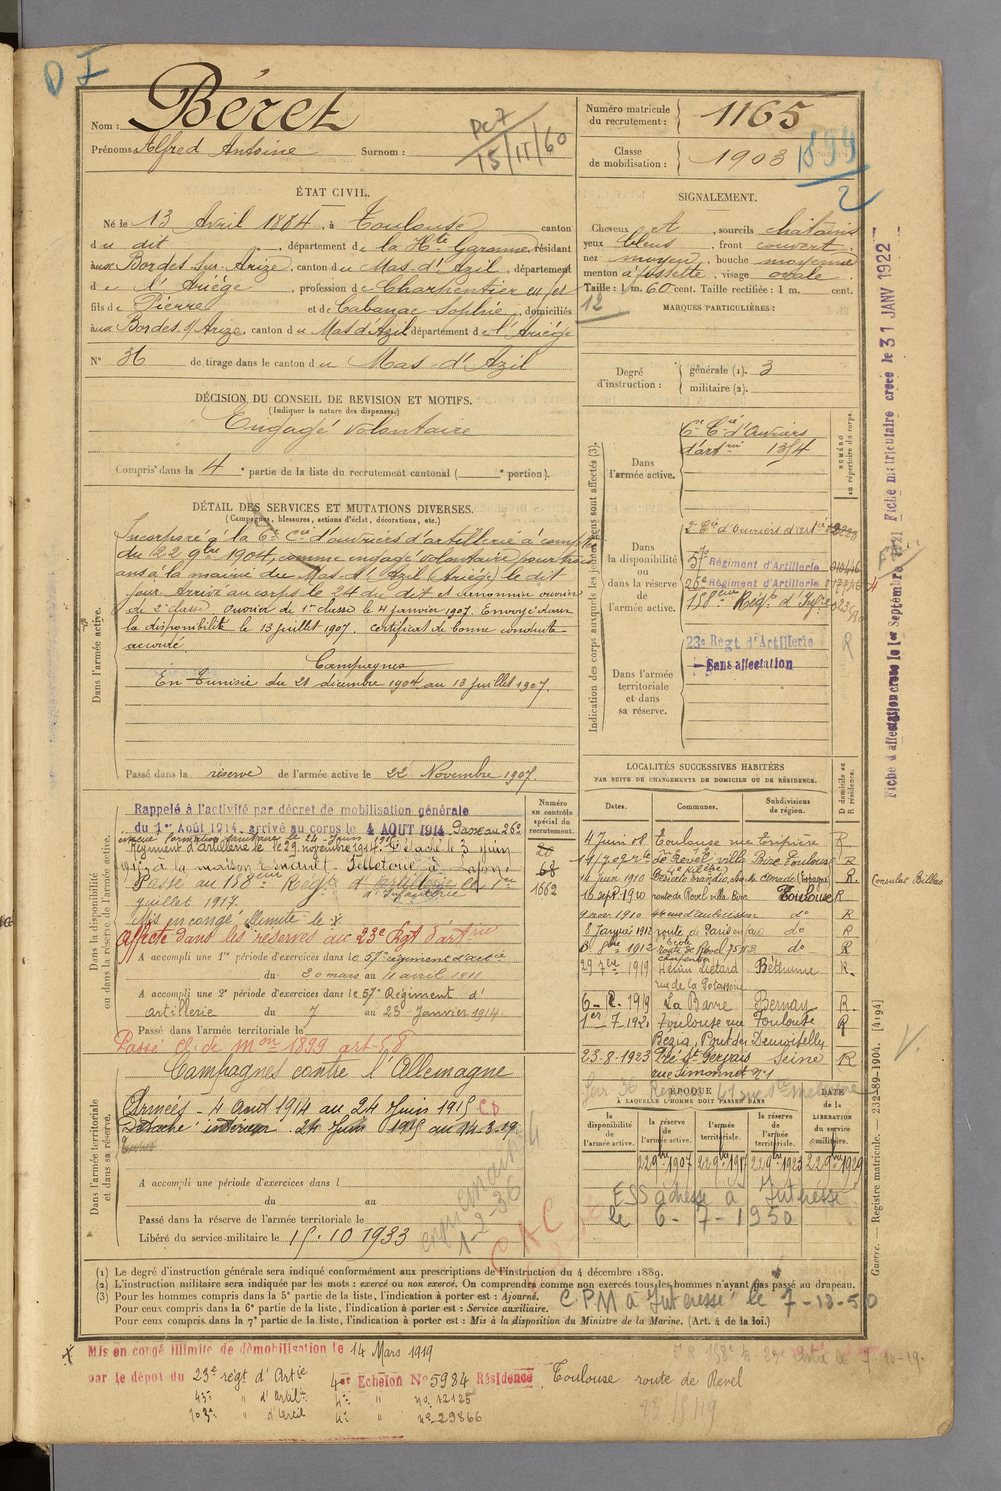 D I
Nom : Béret
Prénoms Alfred Antoine Surnom :
PC7
15/II/60
Numéro matricule du recrutement : 1165
Classe de mobilisation : 1903
1899
2
ÉTAT CIVIL.
Né le 13 Avril 1884, à Toulouse canton
du dit, département de la Hte Garonne, résidant
aux Bordes-sur-Arize, canton du Mas-d'Azil, département
de l'Ariège, profession de Charpentier en fer
fils de Pierre et de Cabanac Sophie, domiciliés
aux Bordes s/Arize, canton du Mas d'Azil département de l'Ariège
N° 36 de tirage dans le canton du Mas-d'Azil
SIGNALEMENT.
Cheveux et, sourcils châtains
yeux bleus, front couvert.
nez moyen, bouche moyenne
menton à fossette, visage ovale
Taille : 1 m. 60 cent. Taille rectifiée : 1 m. cent.
12
MARQUES PARTICULIÈRES :
Degré d'instruction : générale (1). 3
militaire (2).
DÉCISION DU CONSEIL DE REVISION ET MOTIFS.
(Indiquer la nature des dispenses.)
Engagé volontaire
Compris dans la 4e partie de la liste du recrutement cantonal ( e portion).
DÉTAIL DES SERVICES ET MUTATIONS DIVERSES.
(Campagnes, blessures, actions d'éclat, décorations, etc.)
Dans l'armée active.
Incorporé à la 6e Cie d'ouvriers d'artillerie à compter
du 22 9bre 1904, comme engagé volontaire pour trois
ans à la mairie du Mas-d'Azil (Ariège) le dit
jour. Arrivé au corps le 24 du dit et
de 2e classe. Ouvrier de 1re classe le 4 janvier 1907. Envoyé dans
la disponibilité le 13 juillet 1907. Certificat de bonne conduite
accordé.
Campagnes
En Tunisie du 21 décembre 1904 au 13 juillet 1907.
Passé dans la réserve de l'armée active le 22 Novembre 1907.
Indication des corps auxquels les jeunes gens sont affectés (3).
NUMÉRO au répertoire du corps.
Dans l'armée active.
6e Cie d'Ouvriers
d'artrie 1354
Dans la disponibilité ou dans la réserve de l'armée active.
2e Cie d'Ouvriers d'artie
57e Régiment d'Artillerie
26e Régiment d'Artillerie
158ème Régt d'Infie
Dans l'armée territoriale et dans sa réserve.
23e Régt d'Artillerie R
Sans affectation
Fiche d'affectation créée le 1er Septembre 1921 Fiche matriculaire créée le 31 JANV 1922
Dans la disponibilité ou dans la réserve de l'armée active.
Numéro au contrôle spécial du recrutement.
68
1662
Rappelé à l'activité par décret de mobilisation générale
du 1er Août 1914. arrivé au corps le 4 AOUT 1914. Passé au 26e
Régiment d'artillerie le 29 novembre 1914. Détaché le 3 juin
1915 à la maison
Passé au 158ème Régt d'Infanterie le 1er
juillet 1917.
Mis en congé illimité le X
Affecté dans les réserves au 23e Rgt d'artrie
A accompli une 1re période d'exercices dans le 57e régiment d'artie
du 20 mars au 11 avril 1911.
A accompli une 2e période d'exercices dans le 57e Régiment d'
artillerie du 7 au 23 Janvier 1914.
Passé dans l'armée territoriale le
Passé cl. de mon 1899 art. 58
LOCALITÉS SUCCESSIVES HABITÉES
PAR SUITE DE CHANGEMENTS DE DOMICILE OU DE RÉSIDENCE.
Dates. Communes. Subdivisions de région. D domicile ou R résidence.
4 Juin 08 Toulouse rue R
16 juin 1910 R. Consulat Bilbao
16 sept 1910 route de Revel Toulouse R
9 nov 1910 do R
8 Janvier 1912 route de Paris do R
8bre 1912 Route de Revel 75 do R
29 1919 Hénin Liétard Béthune R.
rue de la Potasserie
6-2-1919 La Barre Bernay R
1er 7-1921 Toulouse rue Toulouse R
Bezis, Pont des Demoiselles
23.8-1923 Pré St Gervais Seine R
rue Simonnet n°1
Dans l'armée territoriale et dans sa réserve.
Campagnes contre l'Allemagne
Armées - 4 Aout 1914 au 24 Juin 1915 CD
Détaché intérieur 24 Juin 1915 au 14-3-19
A accompli une période d'exercices dans l
du au
Passé dans la réserve de l'armée territoriale le
Libéré du service militaire le 15.10 1933
1-2-36
ÉPOQUE
À LAQUELLE L'HOMME DOIT PASSER DANS
la disponibilité de l'armée active.
la réserve de l'armée active.
l'armée territoriale.
la réserve de l'armée territoriale.
DATE de la LIBÉRATION du service militaire.
22 9bre 1907 22 9bre 1917 22 9bre 1923 22 9bre 1929
ESS adressé à Intéressé
le 6-7-1950
Guerre. — Registre matricule. — 232-89-1904. [4194]
(1) Le degré d'instruction générale sera indiqué conformément aux prescriptions de l'instruction du 4 décembre 1889.
(2) L'instruction militaire sera indiquée par les mots : exercé ou non exercé. On comprendra comme non exercés tous les hommes n'ayant pas passé au drapeau.
(3) Pour les hommes compris dans la 5e partie de la liste, l'indication à porter est : Ajourné.
Pour ceux compris dans la 6e partie de la liste, l'indication à porter est : Service auxiliaire.
Pour ceux compris dans la 7e partie de la liste, l'indication à porter est : Mis à la disposition du Ministre de la Marine. (Art. 4 de la loi.)
CPM à Intéressé le 7-12-50
X Mis en congé illimité de démobilisation le 14 Mars 1919
par le dépôt du 23e régt d'Artie 4er Echelon N° 5984 Résidence Toulouse route de Revel
43e " d'Artilie 4e " no 12125
103e " d'Artil 4e " no 29866